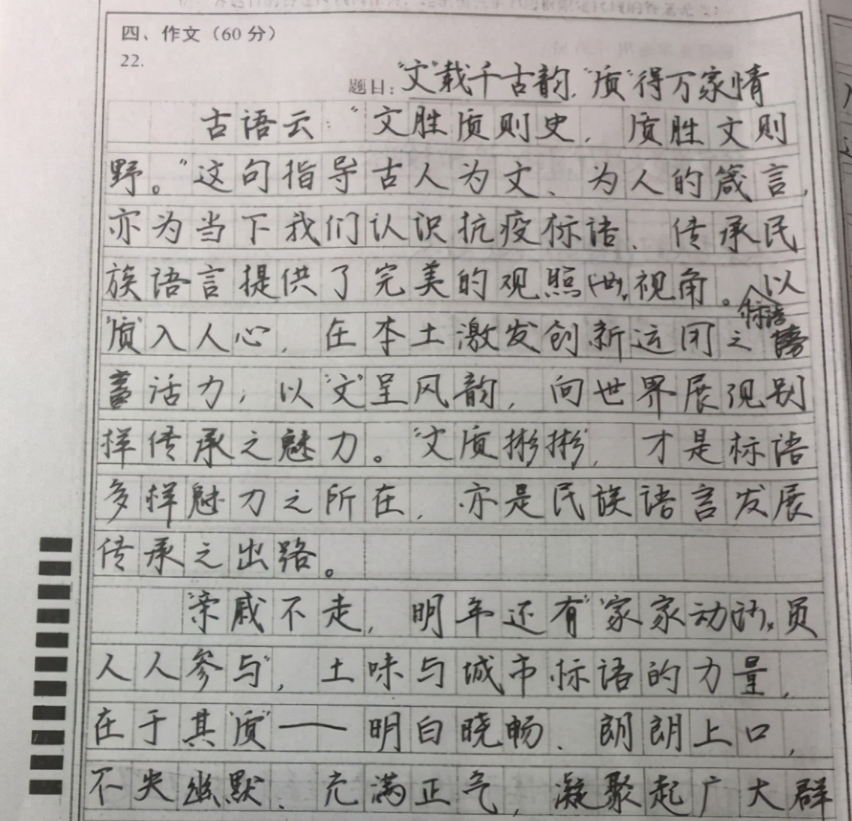 四、作文（60分）
22.
题目："文"载千古韵，"质"得万家情
古语云："文胜质则史，质胜文则
野。"这句指导古人为文、为人的箴言，
亦为当下我们认识抗疫标语、传承民
族语言提供了完美的观照视角。以
"质"入人心，在本土激发创新运用之标语
活力；以"文"呈风韵，向世界展现别
样传承之魅力。"文质彬彬"，才是标语
多样魅力之所在，亦是民族语言发展
传承之出路。
"亲戚不走，明年还有""家家动员
人人参与"，土味与城市标语的力量，
在于其"质"——明白晓畅、朗朗上口，
不失幽默、充满正气，凝聚起广大群